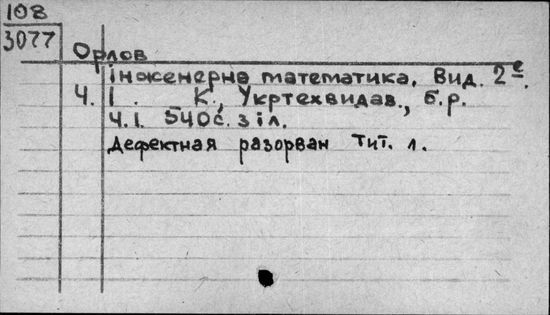 108
3077
Орлов
Інженерна математика. Вид. 2е.
Ч. I. К., Укртехвидав., б.р.
Ч.I. 540с. з іл.
Дефектная разорван тит. л.